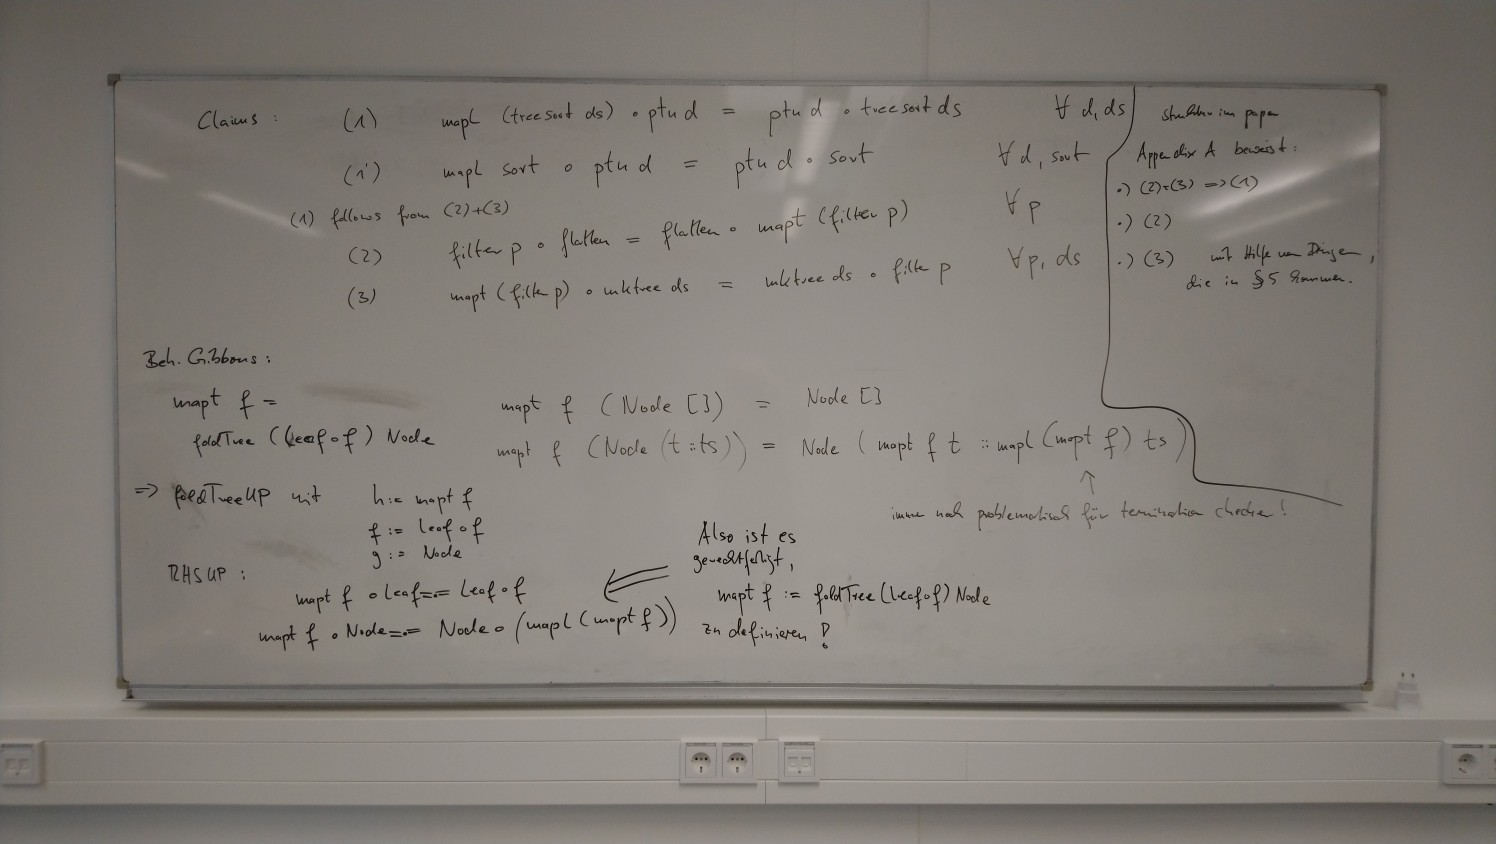 Claims : (1) mapl (treesort ds) ∘ ptn d = ptn d ∘ treesort ds ∀ d, ds
(1') mapl sort ∘ ptn d = ptn d ∘ sort ∀ d, sort
(1) follows from (2)+(3)
(2) filter p ∘ flatten = flatten ∘ mapt (filter p) ∀ p
(3) mapt (filter p) ∘ mktree ds = mktree ds ∘ filter p ∀ p, ds
Struktur im paper
Appendix A beweist :
•) (2)+(3) => (1)
•) (2)
•) (3) mit Hilfe von Dingen,
die in §5 kommen.
Beh. Gibbons :
mapt f =
foldTree (Leaf ∘ f) Node
mapt f (Node []) = Node []
mapt f (Node (t :: ts)) = Node (mapt f t :: mapl (mapt f) ts)
↑
immer noch problematisch für termination checker !
=> foldTreeUP mit h := mapt f
f := Leaf ∘ f
g := Node
RHS UP :
mapt f ∘ Leaf =∘= Leaf ∘ f
mapt f ∘ Node =∘= Node ∘ (mapl (mapt f))
Also ist es
gerechtfertigt,
mapt f := foldTree (Leaf ∘ f) Node
zu definieren !